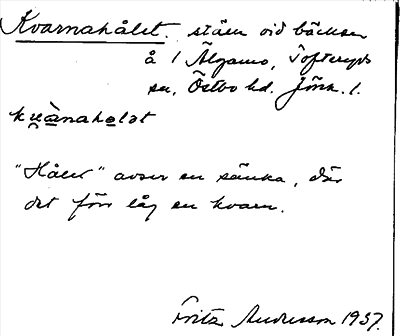 Kvarnahålet. ställe vid bäcken
å / Älgamo, Tofteryds
sn, Östbo hd. Jönk. l.
kṷànahol̥ət
"Hålet" avser en sänka, där
det förr låg en kvarn.
Fritz Andersson 1937.